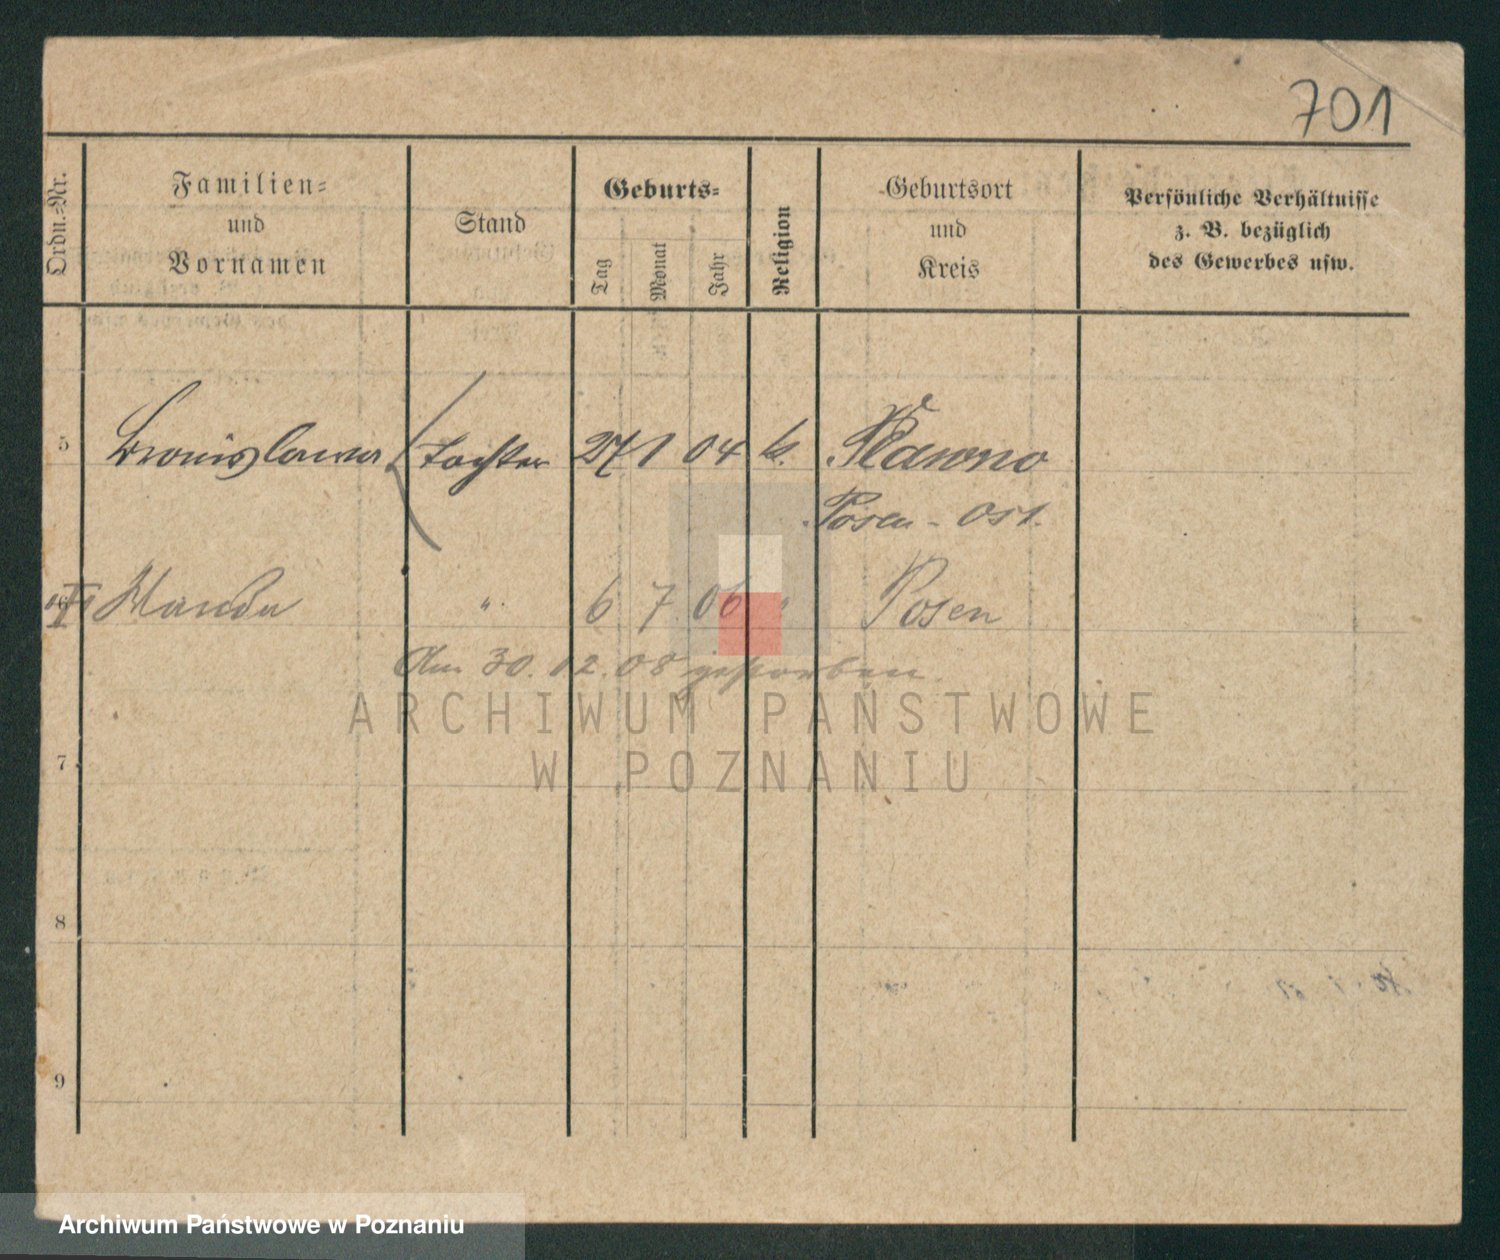 701
Ordn.-Nr.
Familien- und Vornamen
Stand
Geburts-
Tag Monat Jahr
Religion
Geburtsort und Kreis
Persönliche Verhältnisse z. B. bezüglich des Gewerbes usw.
5 Bronislawa Tochter 27 1 04 k. Sławno
Posen - Ost.
6 Wanda " 6 7 06 " Posen
Am 30.12.08 gestorben.
7
8
9
ARCHIWUM PAŃSTWOWE
W POZNANIU
Archiwum Państwowe w Poznaniu